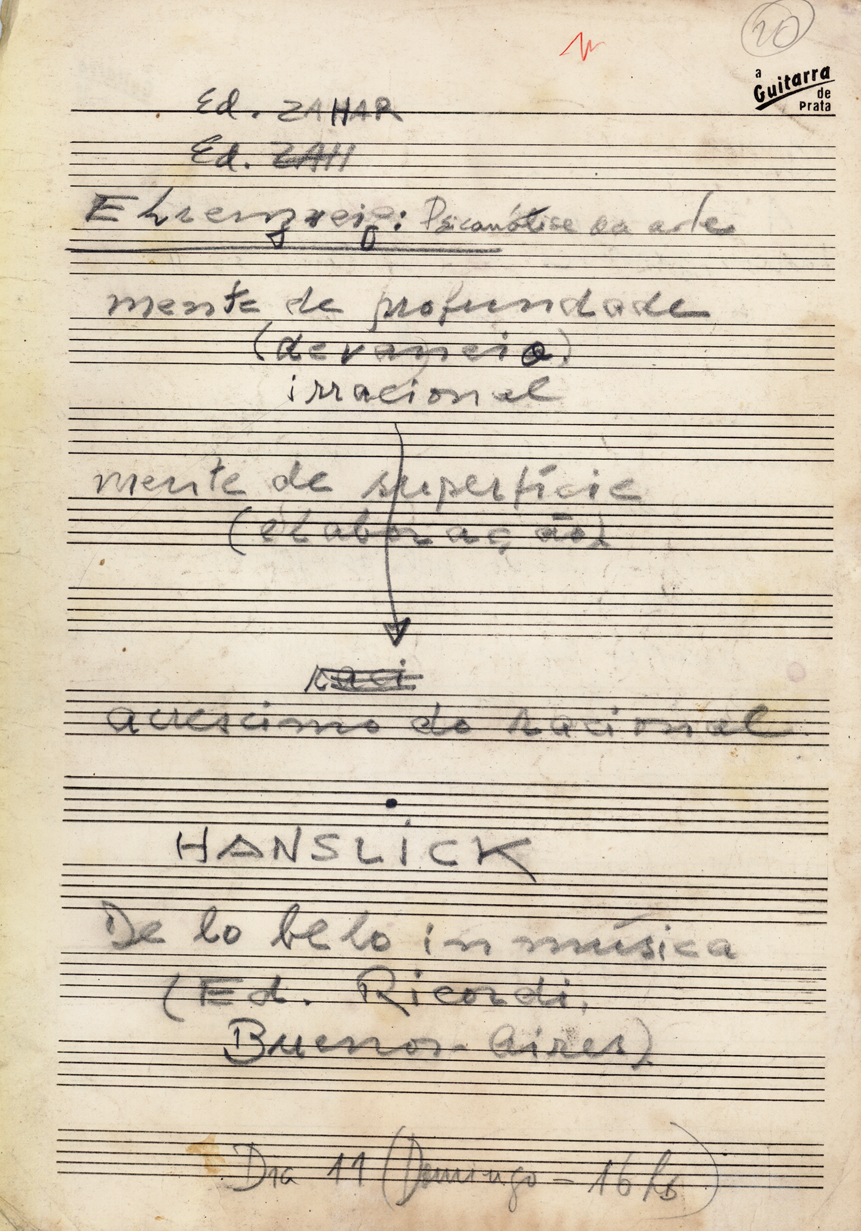 20
a
Guitarra
de
Prata
Ed. ZAHAR
Ed. ZAH
Ehrenzweig: Psicanálise da arte
mente de profundade
(devaneio)
irracional
mente de superfície
(elaboração)
raci
acrescimo do racional
HANSLICK
De lo belo in música
(Ed. Ricordi.
Buenos-Aires)
Dia 11 (Domingo - 16 hs)